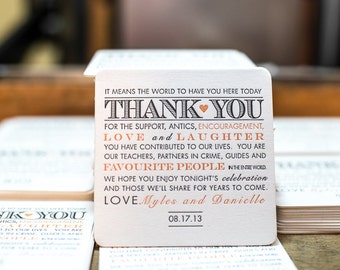 IT MEANS THE WORLD TO HAVE YOU HERE TODAY
THANK YOU
FOR THE SUPPORT, ANTICS, ENCOURAGEMENT,
LOVE and LAUGHTER
YOU HAVE CONTRIBUTED TO OUR LIVES. YOU ARE
OUR TEACHERS, PARTNERS IN CRIME, GUIDES AND
FAVOURITE PEOPLE IN THE ENTIRE WORLD.
WE HOPE YOU ENJOY TONIGHT'S celebration
AND THOSE WE'LL SHARE FOR YEARS TO COME.
LOVE Myles and Danielle
08.17.13
THANK YOU